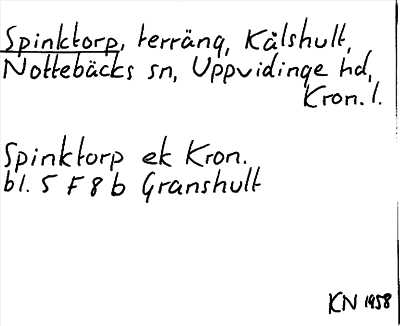 Spinktorp, terräng, Kålshult,
Nottebäcks sn, Uppvidinge hd,
Kron. l.
Spinktorp ek Kron.
bl. 5 F 8 b Granshult
KN 1958